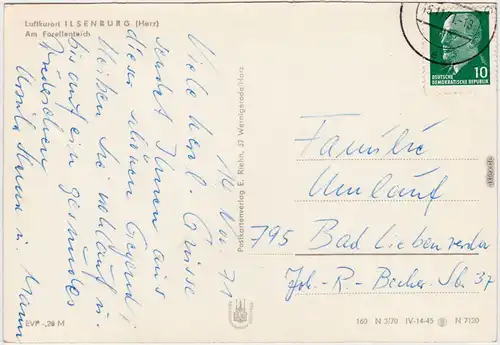 Luftkurort ILSENBURG (Harz)
Am Forellenteich
14. Nov. 71
Viele herzl. Grüsse
sendet Ihnen aus
dieser schönen Gegend!
Bleiben Sie wohlauf u.
bis auf ein gesundes
Wiedersehen
Ursula u. Mann
EVP -,20 M
Postkartenverlag E. Riehn, 37 Wernigerode/Harz
10
DEUTSCHE
DEMOKRATISCHE REPUBLIK
Familie
Umlauf
795 Bad Liebenwerda
Joh.-R.-Becher-Str. 37
160 N 3/70 IV-14-45 N 7120